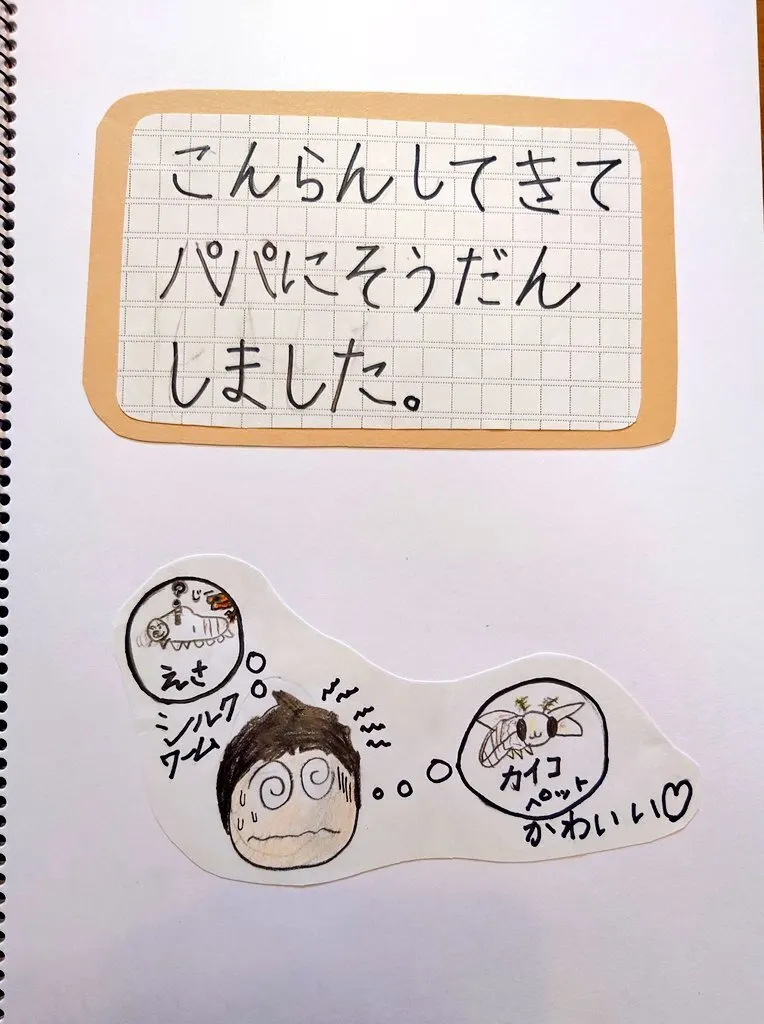 こんらんしてきて
パパにそうだん
しました。
?
じー
えさ
シルク
ワーム
カイコ
ペット
かわいい♡